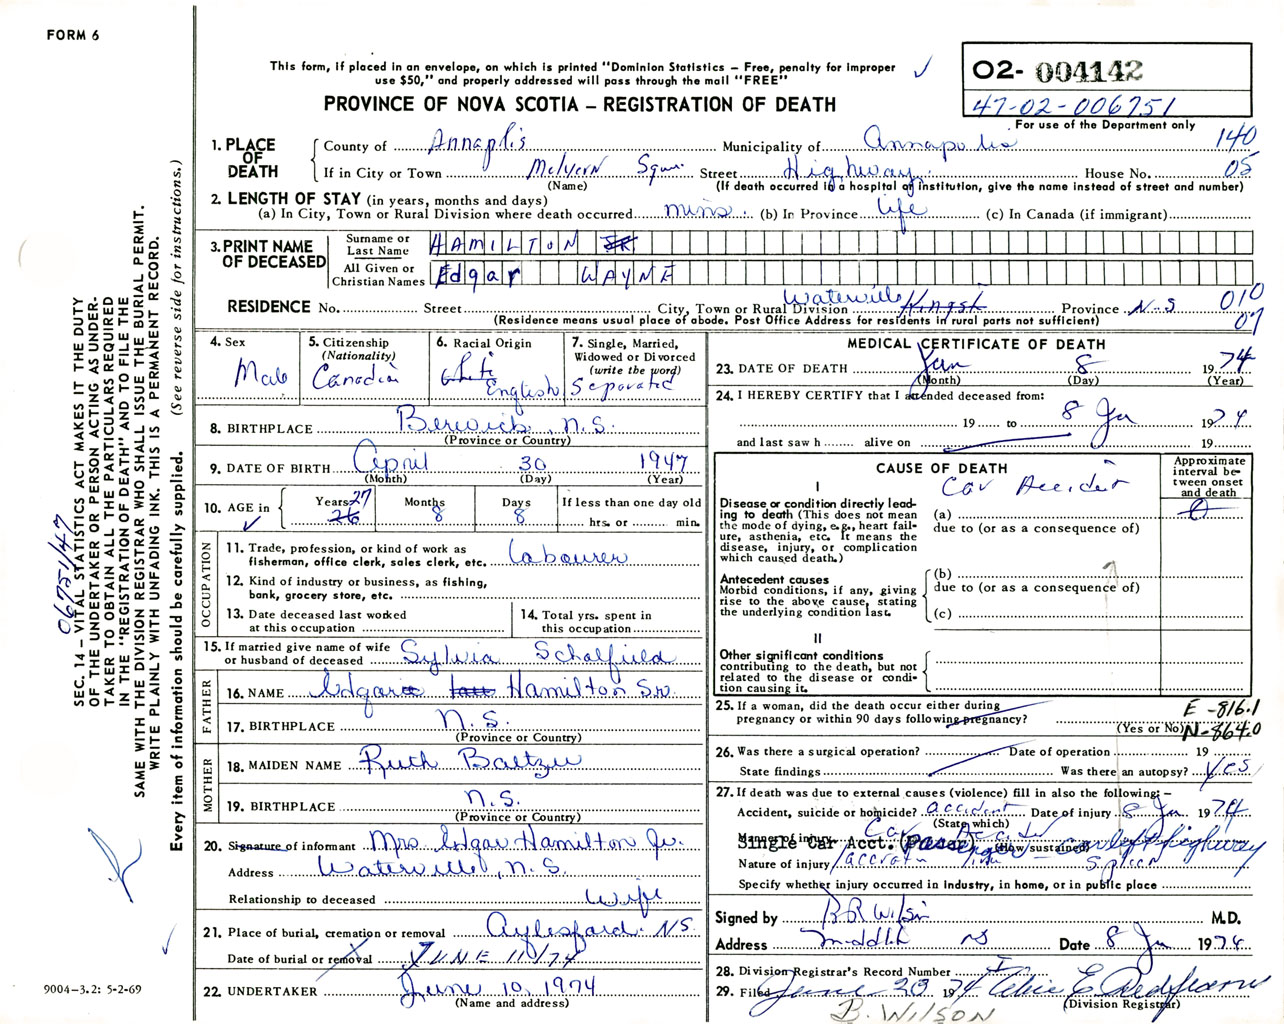 FORM 6
This form, if placed in an envelope, on which is printed "Dominion Statistics – Free, penalty for improper
use $50," and properly addressed will pass through the mail "FREE"
PROVINCE OF NOVA SCOTIA – REGISTRATION OF DEATH
O2- 004142
47-02-006751
For use of the Department only
1. PLACE OF DEATH
County of Annaplis Municipality of Annapolis 140
If in City or Town Melvern Squ. Street Highway House No. 05
(Name) (If death occurred in a hospital or institution, give the name instead of street and number)
2. LENGTH OF STAY (in years, months and days)
(a) In City, Town or Rural Division where death occurred mins. (b) In Province life (c) In Canada (if immigrant)
3. PRINT NAME OF DECEASED
Surname or Last Name HAMILTON JR
All Given or Christian Names Edgar WAYNE
RESIDENCE No. Street City, Town or Rural Division Waterville Kingst Province N-S 010
07
(Residence means usual place of abode. Post Office Address for residents in rural parts not sufficient)
4. Sex
Male
5. Citizenship
(Nationality)
Canadian
6. Racial Origin
White
English
7. Single, Married,
Widowed or Divorced
(write the word)
Separated
8. BIRTHPLACE Berwick, N.S.
(Province or Country)
9. DATE OF BIRTH April 30 1947
(Month) (Day) (Year)
10. AGE in
Years 27 26
Months 8
Days 8
If less than one day old
hrs. or min.
OCCUPATION
11. Trade, profession, or kind of work as
fisherman, office clerk, sales clerk, etc. Labourer
12. Kind of industry or business, as fishing,
bank, grocery store, etc.
13. Date deceased last worked
at this occupation
14. Total yrs. spent in
this occupation
15. If married give name of wife
or husband of deceased Sylvia Schalfield
FATHER
16. NAME Edgar Hamilton Sr.
17. BIRTHPLACE N.S.
(Province or Country)
MOTHER
18. MAIDEN NAME Ruth Baltzer
19. BIRTHPLACE N.S.
(Province or Country)
20. Signature of informant Mrs Edgar Hamilton Jr.
Address Waterville, N.S.
Relationship to deceased Wife
21. Place of burial, cremation or removal Aylesford NS
Date of burial or removal JUNE 11/74
22. UNDERTAKER June 10, 1974
(Name and address)
MEDICAL CERTIFICATE OF DEATH
23. DATE OF DEATH Jan 8 1974
(Month) (Day) (Year)
24. I HEREBY CERTIFY that I attended deceased from:
19 to 8 Ja 1974
and last saw h alive on 19
CAUSE OF DEATH
Approximate
interval be-
tween onset
and death
I
Car Accident
Disease or condition directly lead-
ing to death (This does not mean
the mode of dying, e.g., heart fail-
ure, asthenia, etc. It means the
disease, injury, or complication
which caused death.)
(a) 0
due to (or as a consequence of)
Antecedent causes
Morbid conditions, if any, giving
rise to the above cause, stating
the underlying condition last.
(b)
due to (or as a consequence of)
(c)
II
Other significant conditions
contributing to the death, but not
related to the disease or condi-
tion causing it.
25. If a woman, did the death occur either during
pregnancy or within 90 days following pregnancy?
(Yes or No)
E -816.1
N-864.0
26. Was there a surgical operation? Date of operation 19
State findings Was there an autopsy? Yes
27. If death was due to external causes (violence) fill in also the following:–
Accident, suicide or homicide? accident Date of injury 8 Ja 1974
(State which)
Manner of injury Car Accident
(How sustained)
Single Car Acct. (Passenger – car left highway
Nature of injury spleen
Specify whether injury occurred in Industry, in home, or in public place
Signed by B R Wilson M.D.
Address Middle NS Date 8 Ja 1974
28. Division Registrar's Record Number
29. Filed June 20 1974
(Division Registrar)
B. WILSON
SEC. 14 – VITAL STATISTICS ACT MAKES IT THE DUTY
OF THE UNDERTAKER OR PERSON ACTING AS UNDER-
TAKER TO OBTAIN ALL THE PARTICULARS REQUIRED
IN THE "REGISTRATION OF DEATH" AND TO FILE THE
SAME WITH THE DIVISION REGISTRAR WHO SHALL ISSUE THE BURIAL PERMIT.
WRITE PLAINLY WITH UNFADING INK. THIS IS A PERMANENT RECORD.
Every item of information should be carefully supplied. (See reverse side for instructions.)
06751/47
9004–3.2: 5-2-69